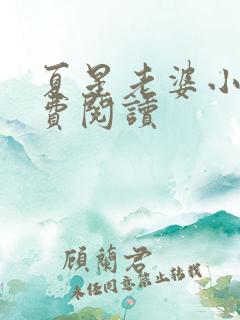 夏星老婆小
費閱讀
顧蘭君
未經同意禁止轉載